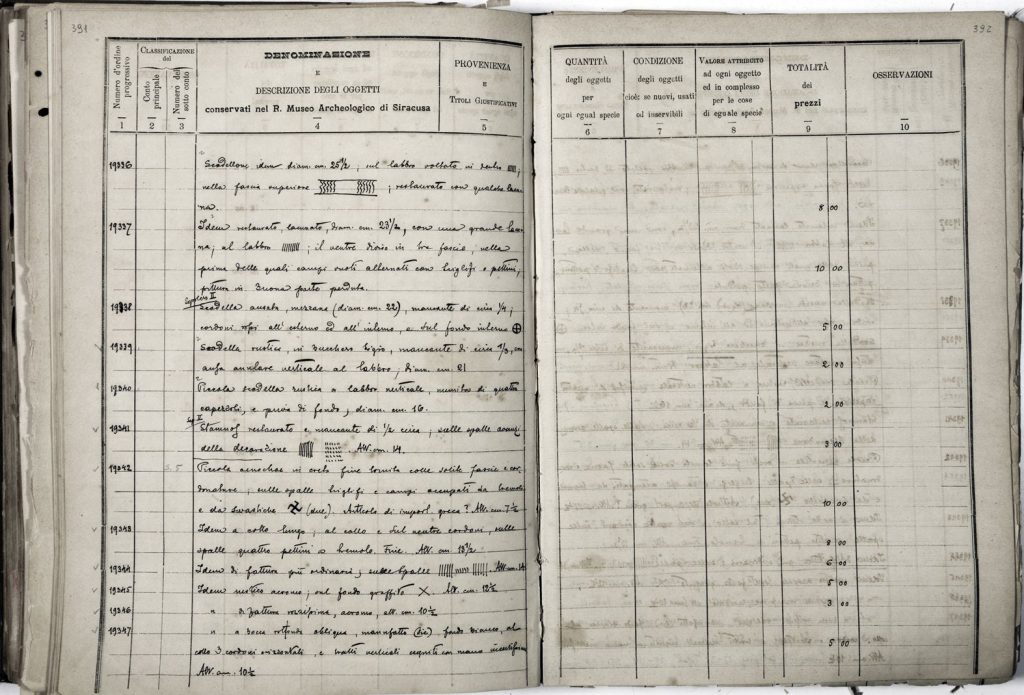 391
Numero d'ordine progressivo
CLASSIFICAZIONE del
Conto principale
Numero del sotto conto
DENOMINAZIONE
E
DESCRIZIONE DEGLI OGGETTI
conservati nel R. Museo Archeologico di Siracusa
PROVENIENZA
E
TITOLI GIUSTIFICATIVI
1 2 3 4 5
19336 Scodellone idem diam. cm. 25½; sul labbro voltato in dentro ;
nella fascia superiore ; restaurato con qualche lacu-
na.
19337 Idem restaurato, lacunato, diam. cm. 23½, con una grande lacu-
na; al labbro ; il ventre diviso in tre fascie, nella
prima delle quali campi vuoti alternati con triglifi e pettini,
pittura in buona parte perduta.
Sepolcro II
19338 Scodella ansata, mezzana (diam. cm. 22), mancante di circa ¼;
cordoni rossi all'esterno ed all'interno, e sul fondo interno ⊕
19339 Scodella rustica, in bucchero bigio, mancante di circa ⅓, con
ansa anulare verticale al labbro; diam. cm. 21
19340 Piccola scodella rustica a labbro verticale, munito di quattro
capezzoli, e priva di fondo; diam. cm. 16.
Sep. II
19341 Stamnos restaurato e mancante di ½ circa; sulle spalle avanzi
della decorazione . Alt. cm. 14.
19342 Piccola oenochoe in creta fine tornita colle solite fascie e cor-
donature; sulle spalle triglifi e campi occupati da tremoli
e da swastiche 卍 (due). Articolo di import. greca? Alt. cm. 7½
19343 Idem a collo lungo; al collo e sul ventre cordoni, sulle
spalle quattro pettini a tremolo. Fine. Alt. cm. 13½
19344 Idem di fattura più ordinaria; sulle spalle Alt. cm. 14
19345 Idem rustico acromo; sul fondo graffito X. Alt. cm. 12½
19346 " di fattura rozzissima, acromo, alt. cm. 10½
19347 " a bocca rotonda obliqua, manufatto (sic) fondo bianco, al
collo 3 cordoni orizzontali, e tratti verticali eseguiti con mano incertissima
Alt. cm. 10½
392
QUANTITÀ
degli oggetti
per
ogni egual specie
CONDIZIONE
degli oggetti
cioè: se nuovi, usati
od inservibili
VALORE ATTRIBUITO
ad ogni oggetto
ed in complesso
per le cose
di eguale specie
TOTALITÀ
dei
prezzi
OSSERVAZIONI
6 7 8 9 10
8 00
10 00
5 00
2 00
2 00
3 00
10 00
8 00
6 00
5 00
3 00
5 00